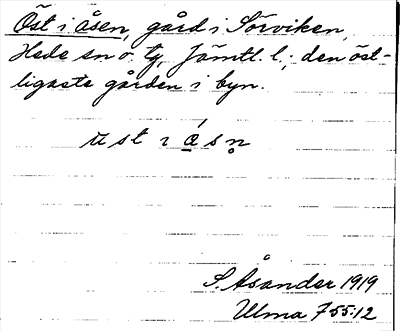 Öst i åsen, gård i Sörviken,
Hede sn o. tg, Jämtl. l.; den öst-
ligaste gården i byn.
st i
S. Åsander 1919
Ulma 755:12